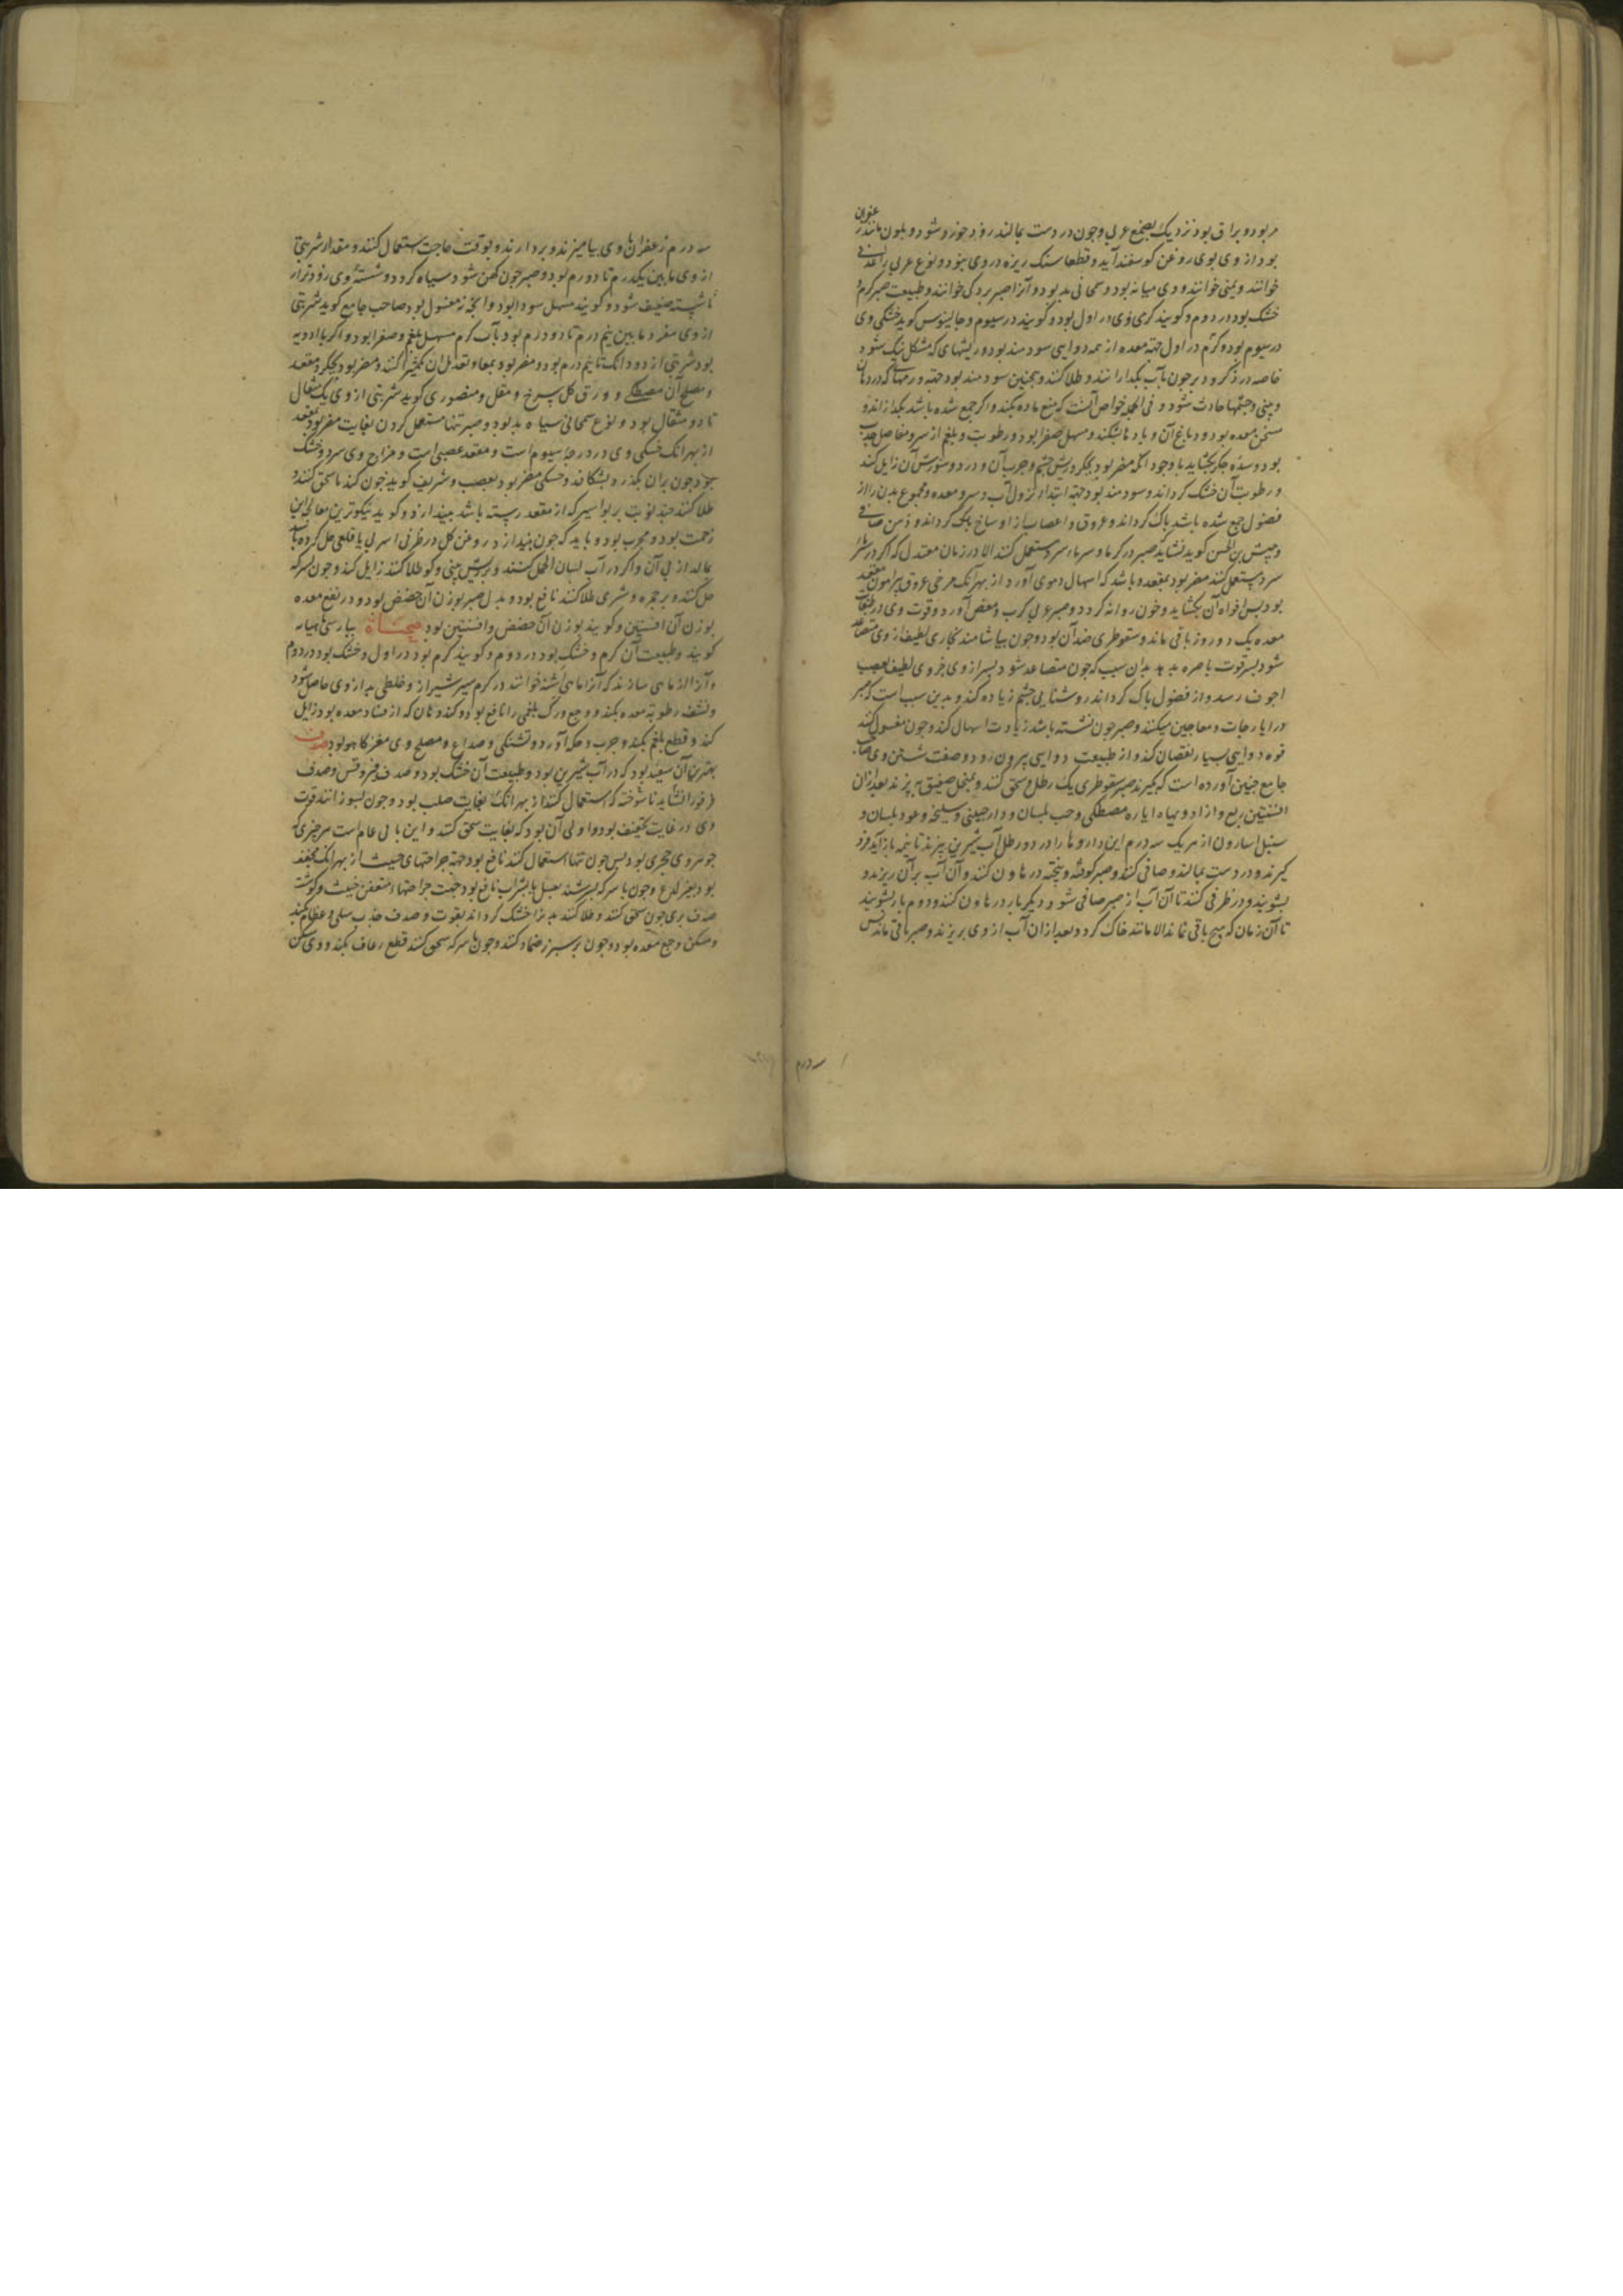 مر بود و براق بود نزدیک بصمغ عربی و چون در دست بمالند زود خورد شود و بلون مانند زعفران
بود از وی بوی روغن کوسفند آید و قطعا سنک ریزه در وی نبود و نوع عربی را عدنی
خوانند و یمنی خوانند و وی میانه بود و سمحانی بد بود و آنرا صبر بردکی خوانند و طبیعت صبر کرم و
خشک بود در دوم و کویند کرمی وی در اول بود و کویند در سیوم و جالینوس کوید خشکی وی
در سیوم بود و کرم در اول جهة معده از همه دوایی سودمند بود و ریشهای که مشکل نیک شود
خاصه در ذکر و دبر چون بآب بکدازانند و طلا کنند و همچنین سودمند بود جهة ورمهائی که در دهان
و بینی و چشمها حادث شود و فی الجمله خواص آنست که منع ماده بکند و اکر جمع شده باشد بکدازاند و
مسخن معده بود و دباغ آن و بادها بشکند و مسهل صفرا بود و رطوبت و بلغم از سر و مفاصل جذب
بود و سده جکر بکشاید با وجود آنکه مضر بود بجکر و ریش چشم و جرب آن و درد و سوزش آن زایل کند
و رطوبت آن خشک کرداند و سودمند بود جهة ابتداء نزول آب و سر و معده و مجموع بدن را از
فضول جمع شده باشد پاک کرداند و عروق و اعصاب از اوساخ پاک کرداند و ذهن صافی
و حبیش بن الحسن کوید نشاید صبر در کرما و سرماء سرد مستعمل کنند الا در زمان معتدل که اکر در
سرد مستعمل کنند مضر بود بمقعده و باشد که اسهال دموی آورد از بهر آنک عرضی عروق پیرامون مقعد
بود پس افواه آن بکشاید و خون روانه کردد و صبر عربی کرب و مغص آورد و قوت وی در طبقات
معده یک دو روز باقی ماند و سقوطری ضد آن بود و چون بیاشامند بخاری لطیف از وی متصاعد
شود بسر قوت باصره بدهد بدان سبب که چون متصاعد شود بسر از وی جزوی لطیف بعصب
اجوف رسد و از فضول پاک کرداند روشنایی چشم زیاده کند و بدین سبب است که صبر
در ایارجات و معاجین میکنند و صبر چون نشسته باشد زیادت اسهال کند و چون مغسول کنند
قوه دوایی بسیار نقصان کند و از طبیعت دوایی بیرون رود و صفت شستن وی صاحب
جامع چنین آورده است که بکیرند صبر سقوطری یک رطل و سحق کنند و بمنخل صفیق بپزند بعد از آن
افسنتین ربع و از ادویهاء ایاره مصطکی و حب بلسان و دارچینی و سلیخه و عود بلسان و
سنبل اسارون از هر یک سه درم این داروها را در دو رطل آب شیرین بپزند تا بنیمه باز آید فرو
کیرند و در دست بمالند و صافی کنند و صبر کوفته و بیخته در هاون کنند و آن آب بر آن ریزند و
بشویند و در ظرفی کنند تا آن آب از صبر صافی شود و دیکر بار در هاون کنند و دوم بار بشویند
تا آن زمان که هیچ باقی نماند الا مانند خاک کردد و بعد از آن آب از وی بریزند و صبر باقی ماند پس
سه درم
سه درم زعفران با وی بیامیزند و بردارند و بوقت حاجت استعمال کنند و مقدار شربتی
از وی مابین یکدرم تا دو درم بود و صبر چون کهن شود سیاه کردد و شسته وی زودتر از
ناشسته ضعیف شود و کویند مسهل سودا بود و آنچه نه مغسول بود صاحب جامع کوید شربتی
از وی مفرد مابین نیم درم تا دو درم بود بآب کرم مسهل بلغم و صفرا بود و اکر با ادویه
بود شربتی از دو دانک تا نیم درم بود و مضر بود بمعا و تعدیل آن بکثیرا کنند و مضر بود بجکر و مقعد
و مصلح آن مصطکی و ورق کل سرخ و مقل و منصوری کوید شربتی از وی یک مثقال
تا دو مثقال بود و نوع سمحانی سیاه بد بود و صبر تنها مستعمل کردن بغایت مضر بود بمقعد
از بهر آنک خشکی وی در درجهٔ سیوم است و مقعد عصبی است و مزاج وی سرد و خشک
بود چون بر آن بکذرد بشکافد و خشکی مضر بود بعصب و شریف کوید چون کندنا سحق کنند و
طلا کنند چند نوبت بر بواسیر که از مقعد رسته باشد بیندازد و کوید نیکوترین معالجهٔ این
زحمت بود و مجرب بود و باید که چون بیندازد روغن کل در ظرفی اسربی یا قلعی حل کرده باشد
بمالد از پی آن و اکر در آب لسان الحمل کنند و بر ریش بینی و کو طلا کنند زایل کند و چون بسرکه
حل کنند و بر جمره و شری طلا کنند نافع بود و بدل صبر بوزن آن حضض بود و در نفع معده
بوزن آن افسنتین و کویند بوزن آن حضض و افسنتین بود صحناة بپارسی ماهیانه
کویند و طبیعت آن کرم و خشک بود در دوم و کویند کرم بود در اول و خشک بود در دوم
و آنرا از ماهی سازند که آنرا ماهی اشنه خوانند در کرم سیر شیراز و خلطی بد از وی حاصل شود
و نشف رطوبة معده بکند و وجع ورک بلغمی را نافع بود و کند دهان که از فساد معده بود زایل
کند و قطع بلغم بکند و جرب و حکه آورد و تشنکی و صداع و مصلح وی مغز کاهو بود صدف
بهترین آن سفید بود که در آب شیرین بود و طبیعت آن خشک بود و صدف فرفیر و قس و صدف
فرفورا نشاید ناسوخته که استعمال کنند از بهر آنک بغایت صلب بود و چون بسوزانند قوت
وی در غایت تجفیف بود و اولی آن بود که بغایت سحق کنند و این بابی عام است هر چیزی که
جوهر وی حجری بود پس چون تنها استعمال کنند نافع بود جهة جراحتهای خبیث از بهر آنک مجفف
بود بغیر لدغ و چون با سرکه بسرشند بعسل یا بشراب نافع بود جهت جراحتهاء متعفن خبیث و کوشت
صدف بری چون سحق کنند و طلا کنند بدنرا خشک کرداند بقوت و صدف جذب سلی و عظام بکند
و مسکن وجع معده بود و چون بر سپرز ضماد کنند و چون با سرکه سحق کنند قطع رعاف بکند و وی مسکن